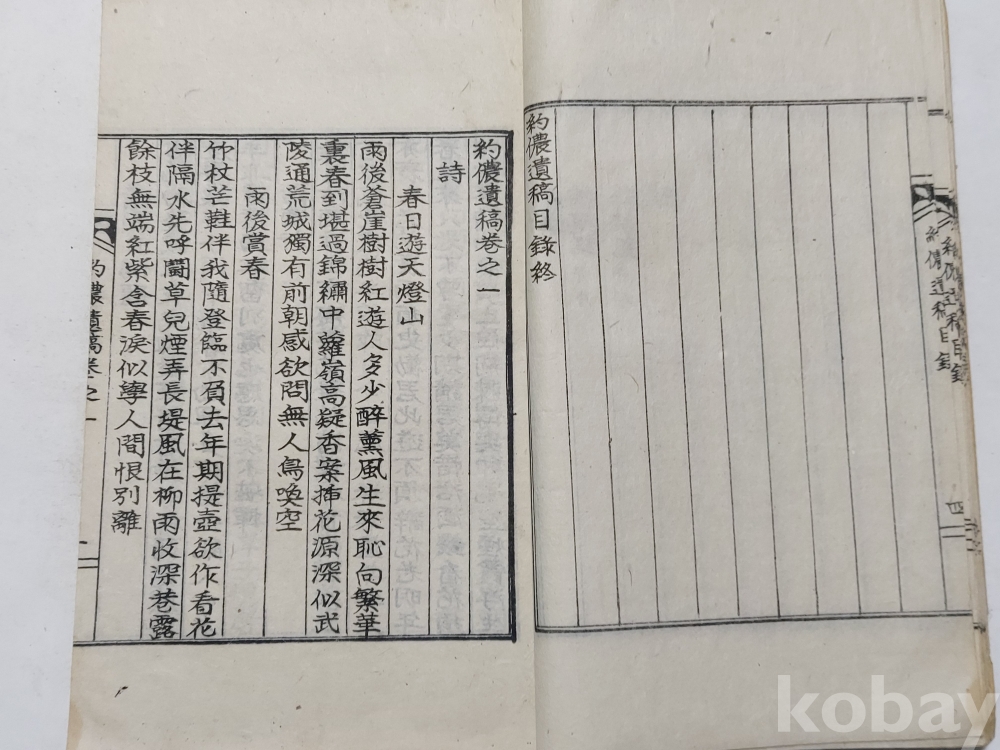 約儂遺稿目錄終
約儂遺稿目錄
約儂遺稿目錄
四
約儂遺稿卷之一
詩
春日遊天燈山
雨後蒼崖樹樹紅遊人多少醉薰風生來恥向繁華
裏春到堪過錦繡中蘿嶺高凝香案揷花源深似武
陵通荒城獨有前朝感欲問無人鳥喚空
雨後賞春
竹杖芒鞋伴我隨登臨不負去年期提壺欲作看花
伴隔水先呼鬪草兒煙弄長堤風在柳雨收深巷露
餘枝無端紅紫含春淚似學人間恨別離
約儂遺稿卷之一
kobay